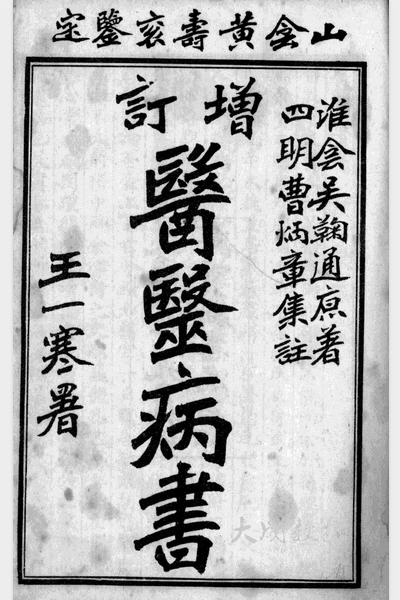 山侌黄壽袞鑒定
淮侌吳鞠通原著
四明曹炳章集註
增訂
醫毉病書
王一寒署
大成